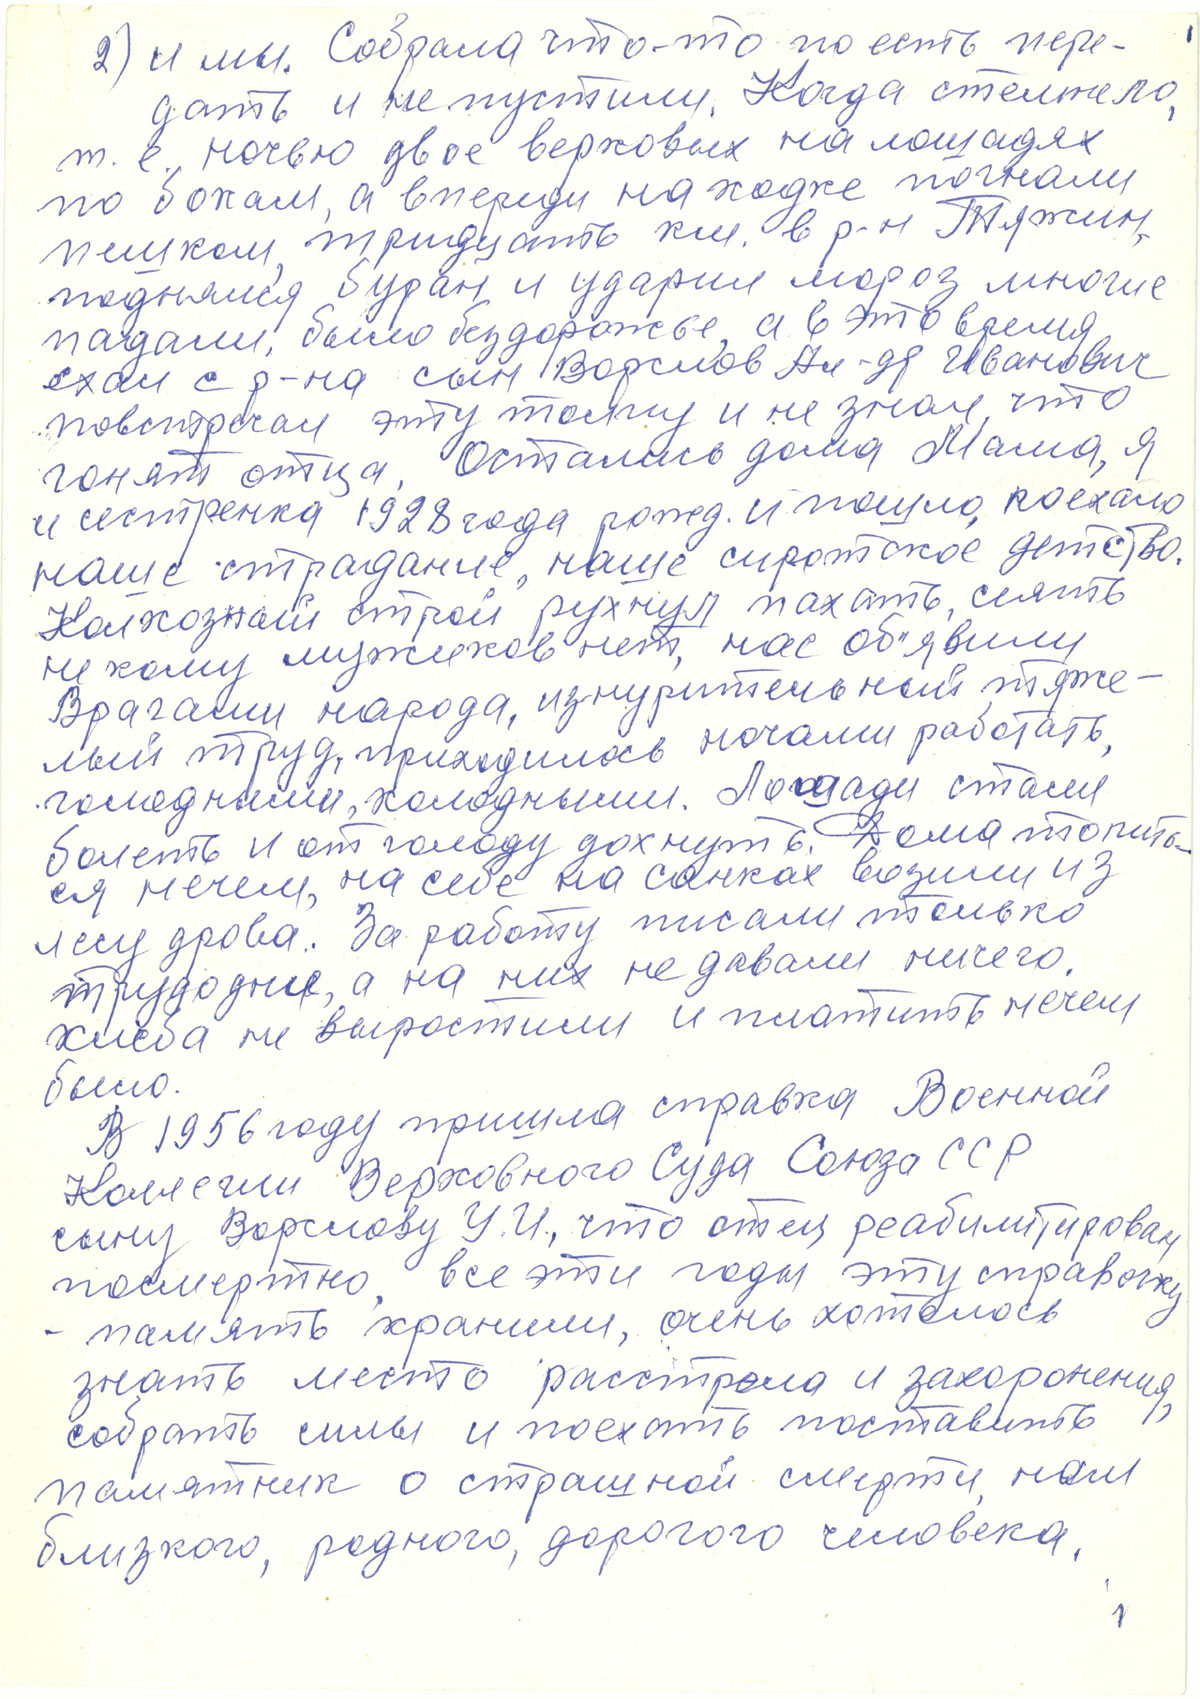 2) и мы. Собрала что-то поесть пере-
дать и не пустили. Когда стемнело,
т. е., ночью двое верховых на лошадях
по бокам, а впереди на ходке погнали
пешком, тридцать км. в р-н Тяжин,
поднялся буран и ударил мороз многие
падали, было бездорожье, а в это время
ехал с р-на сын Ворслов Ал-др Иванович
повстречал эту толпу и не знал, что
гонят отца. Остались дома Мама, я
и сестренка 1928 года рожд. и пошло, поехало
наше страдание, наше сиротское детство.
Колхозный строй рухнул пахать, сеять
не кому мужиков нет, нас об"явили
Врагами народа, изнурительный, тяже-
лый труд, приходилось ночами работать,
голодными, холодными. Лошади стали
болеть и от голоду дохнуть. Дома топить-
ся нечем, на себе на санках возили из
лесу дрова. За работу писали только
трудодние, а на них не давали ничего.
хлеба не выростили и платить нечем
было.
В 1956 году пришла справка Военной
Коллегии Верховного Суда Союза ССР
сыну Ворслову У.И., что отец реабилитирован
посмертно, все эти годы эту справочку
- память хранили, очень хотелось
знать место расстрела и захоронения,
собрать силы и поехать поставить
памятник о страшной смерти, нам
близкого, родного, дорогого человека.